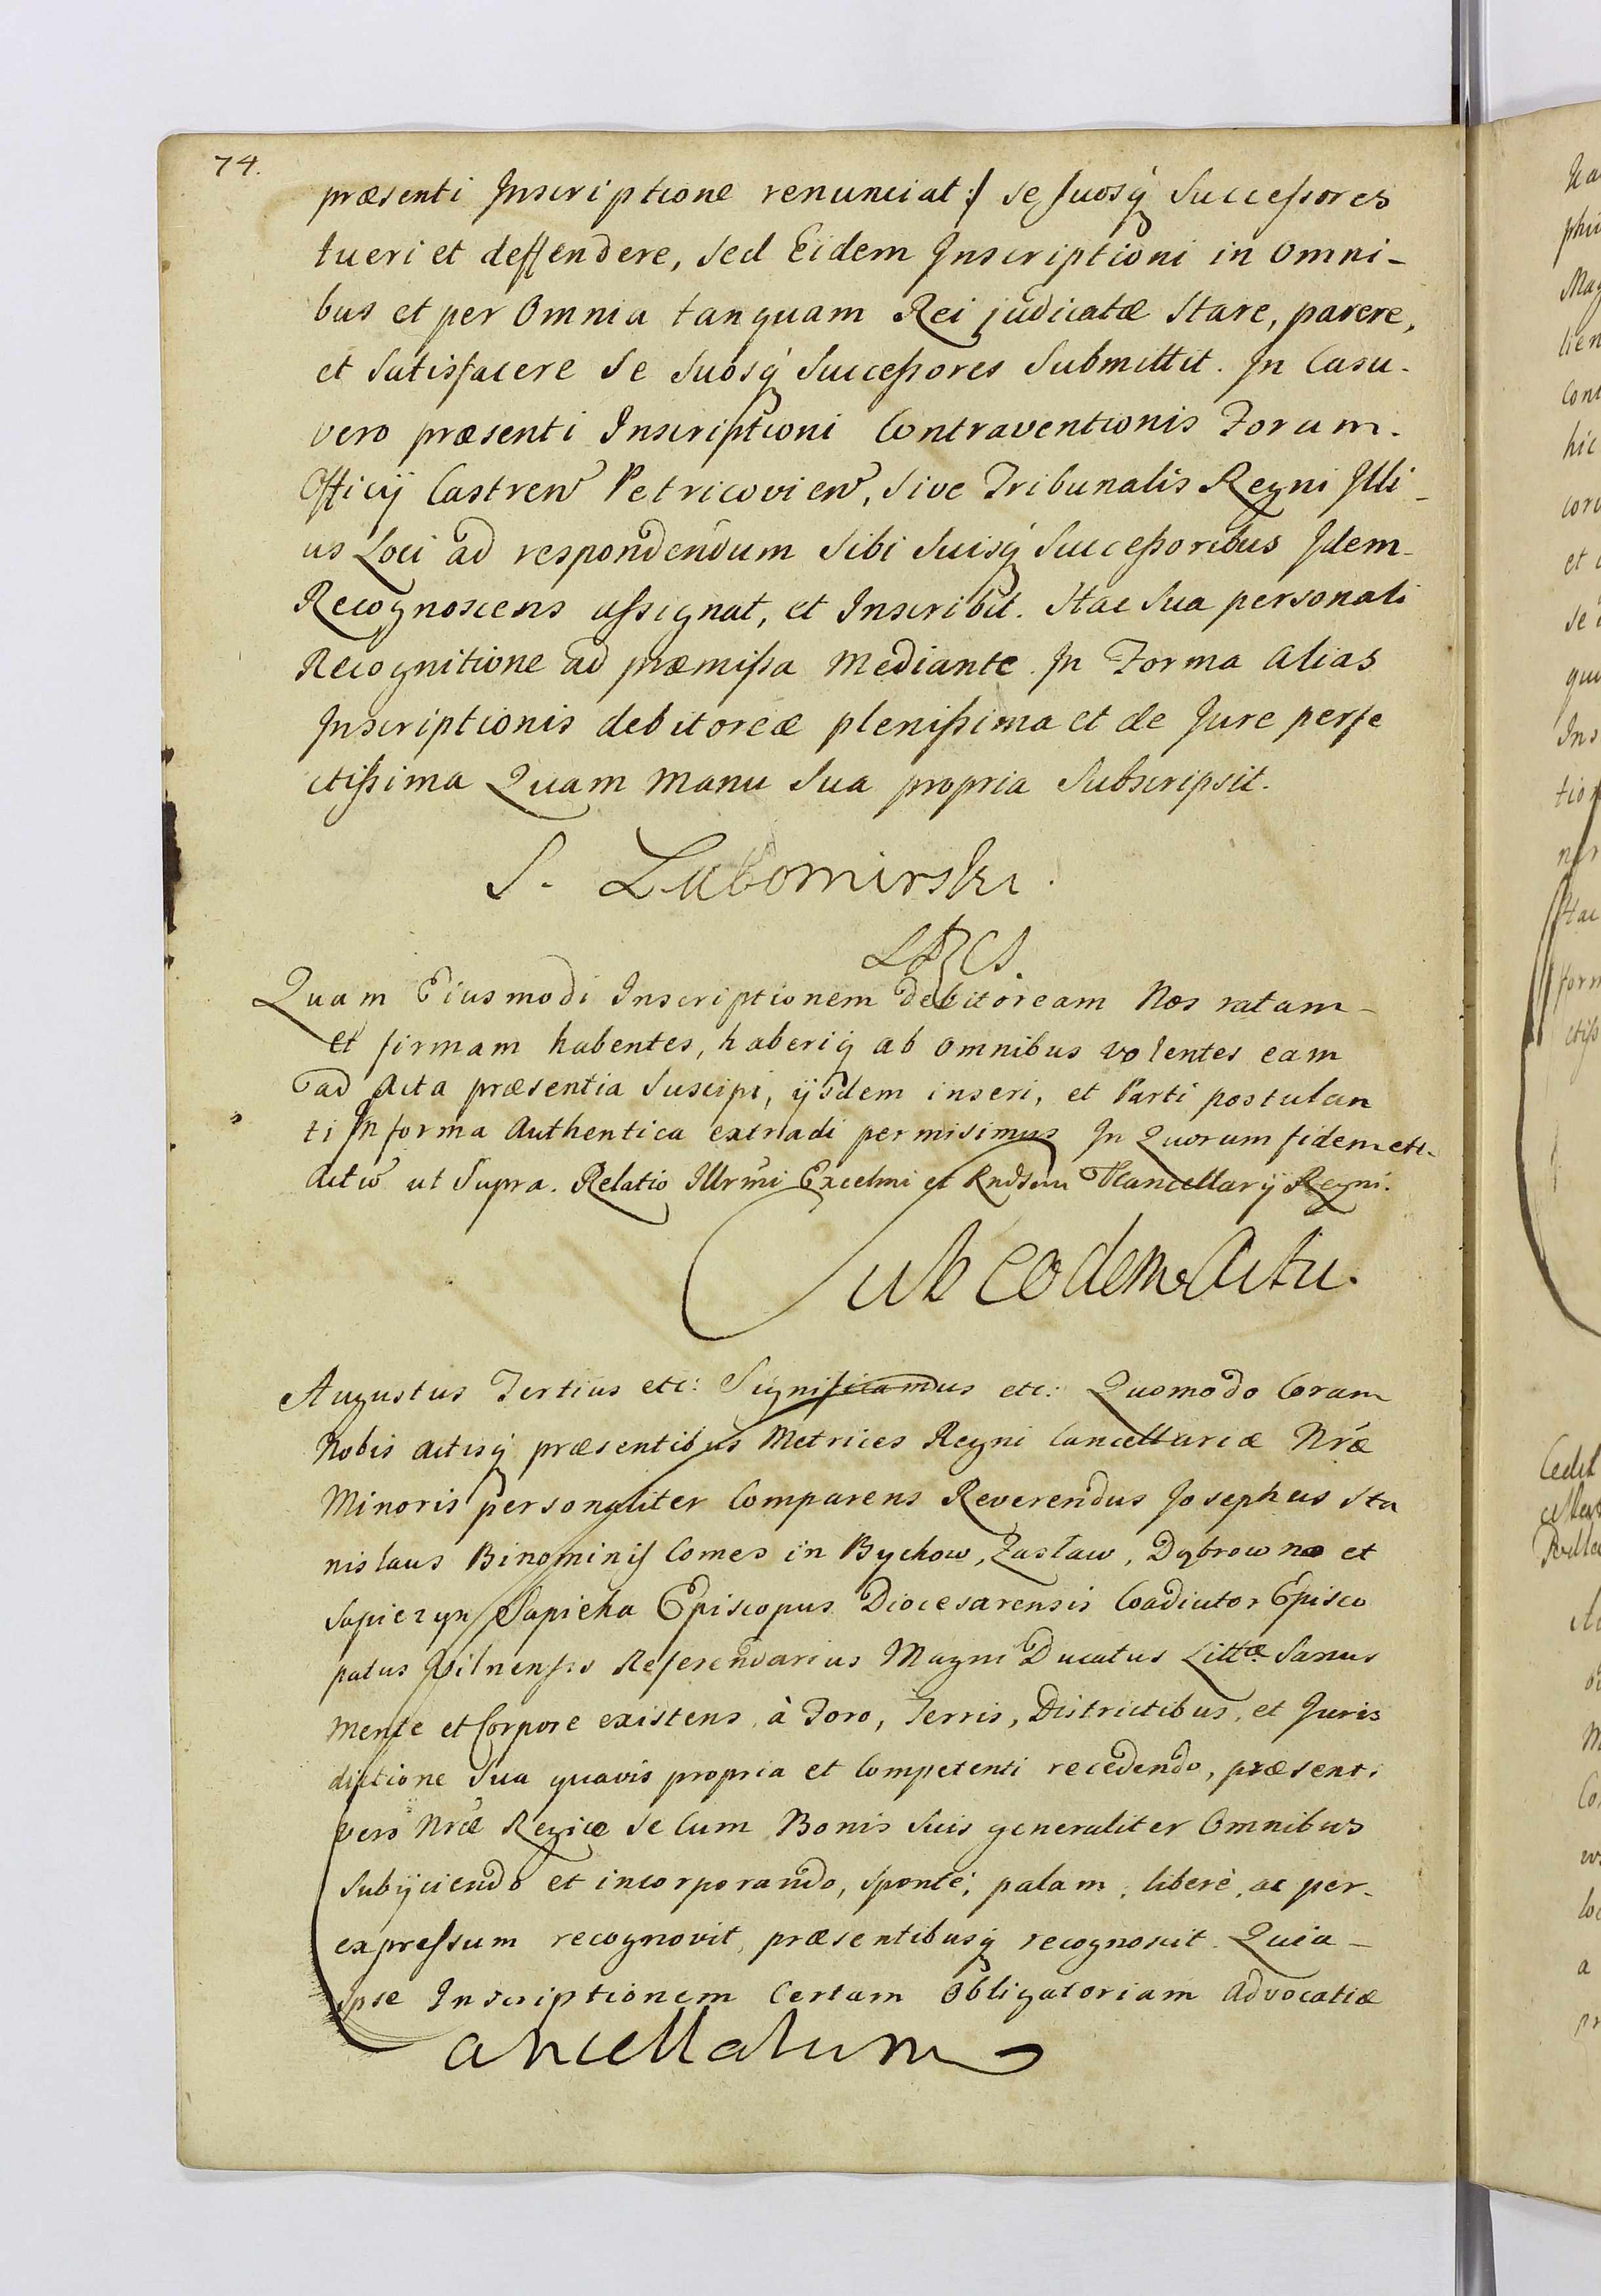 74.
præsenti Inscriptione renunciat :/ se suosq́ Successores
tueri et deffendere, sed Eidem Inscriptioni in Omni-
bus et per Omnia tanquam Rei judicatæ Stare, parere,
et Satisfacere Se Suosq́ Successores Submittit. In Casu.
vero præsenti Inscriptioni Contraventionis Forum.
Officij Castren̄ Petricovien̄, Sive Tribunalis Regni Illi-
us Loci ad respondendum Sibi Suisq́ Successoribus Idem-
Recognoscens assignat, et Inscribit. Hac Sua personali
Recognitione ad præmissa Mediante In Forma Alias
Inscriptionis debitoreæ plenissima et de Jure perfe
ctissima Quam Manu Sua propria Subscripsit.
S. Lubomirski.
Quam Eiusmodi Inscriptionem Debitoream Nos ratam-
et firmam habentes, haberiq́ ab omnibus volentes eam
ad Acta præsentia Suscipi, ijsdem inseri, et Parti postulan
ti In forma Authentica extradi permisimus In Quorum fidem etc.
Act̄ ut Supra. Relatio Illrm̄i Excelmi et Rndsmi Cancellarij Regni.
Sub eodem Actu.
Augustus Tertius etc: Significamus etc: Quomodo Coram
Nobis Actisq́ præsentibus Metrices Regni Cancellariæ Nr̄æ
Minoris personaliter Comparens Reverendus Josephus Sta
nislaus Binominis Comes in Bychow, Zasław, Dąbrowna et
Sapiezyn Sapieha Episcopus Diocesarensis Coadiutor Episco
patus Vilnensis Referendarius Magni Ducatus Littæ Sanus
Mente et Corpore existens à Foro, Terris, Districtibus, et Juris
dictione Sua quavis propria et Competenti recedendo, præsenti
vero Nr̄æ Regiæ Se Cum Bonis Suis generaliter Omnibus
Subijciendo et incorporando, Sponte, palam, liberè, ac per-
expressum recognovit, præsentibusq́ recognoscit. Quia-
Ipse Inscriptionem Certam Obligatoriam Advocatiæ
Cancellatum